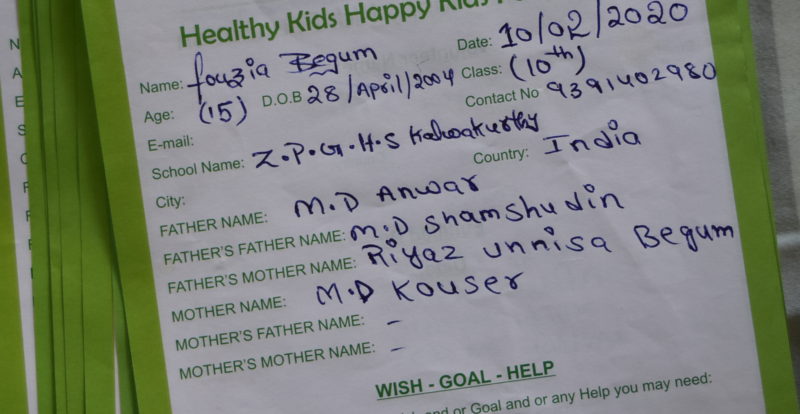 Healthy Kids Happy Kids
Date: 10/02/2020
Name: fouzia Begum
Age: (15) D.O.B 28/April/2004 Class: (10th)
Contact No 9391402980
E-mail:
School Name: Z.P.G.H.S Kalwakurthy
City: Country: India
FATHER NAME: M.D Anwar
FATHER'S FATHER NAME: M.D Shamshudin
FATHER'S MOTHER NAME: Riyaz unnisa Begum
MOTHER NAME: M.D Kouser
MOTHER'S FATHER NAME: -
MOTHER'S MOTHER NAME: -
WISH - GOAL - HELP
and or Goal and or any Help you may need:
N
A
E
S